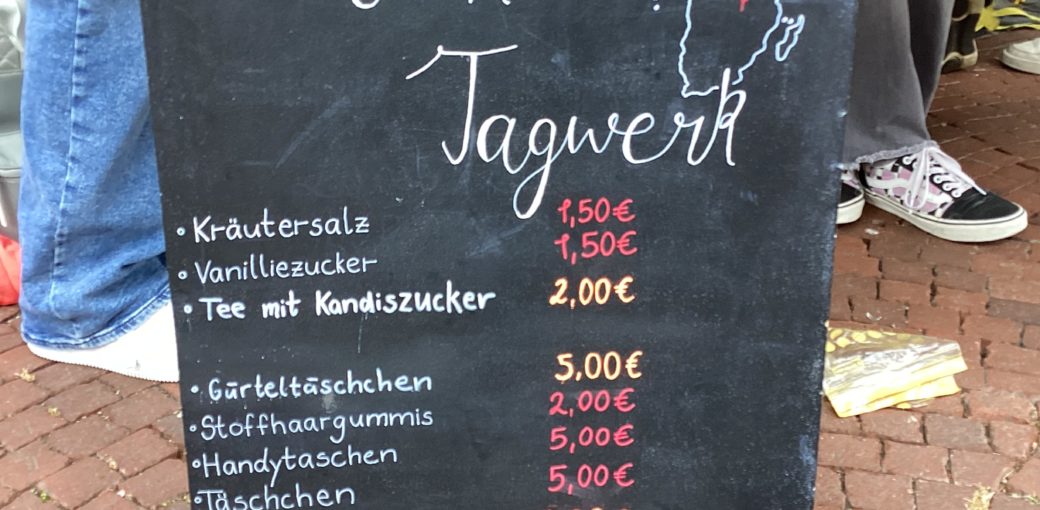 Tagwerk
· Kräutersalz 1,50€
· Vanilliezucker 1,50€
· Tee mit Kandiszucker 2,00€
· Gürteltäschchen 5,00€
· Stoffhaargummis 2,00€
· Handytaschen 5,00€
· Täschchen 5,00€